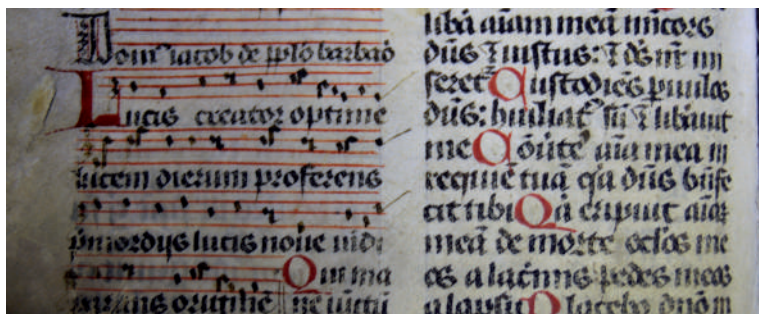 Domꝰ iacob de pplo barbaō
Lucis creator optime
lucem dierum proferens
pmordijs lucis noue mūdi
Qui ma
parans originē ne uictū
libā aīam meā mīcors
dūs ⁊ iustus: ⁊ ds nr mi
seret Custodiēs puulos
dūs: huiliatꝰ sū ⁊ libauit
me Cōūte aīa mea in
requiē tuā qa dūs bnfe
cit tibi Qā eripuit aīaz
meā de morte oclos me
os a lacrimis pedes meos
a lapsu Placebo dnō in